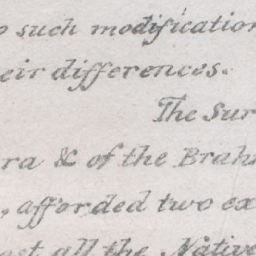 such modification
eir differences.
The Sur
ra & of the Brah
, afforded two ex
ost all the Native